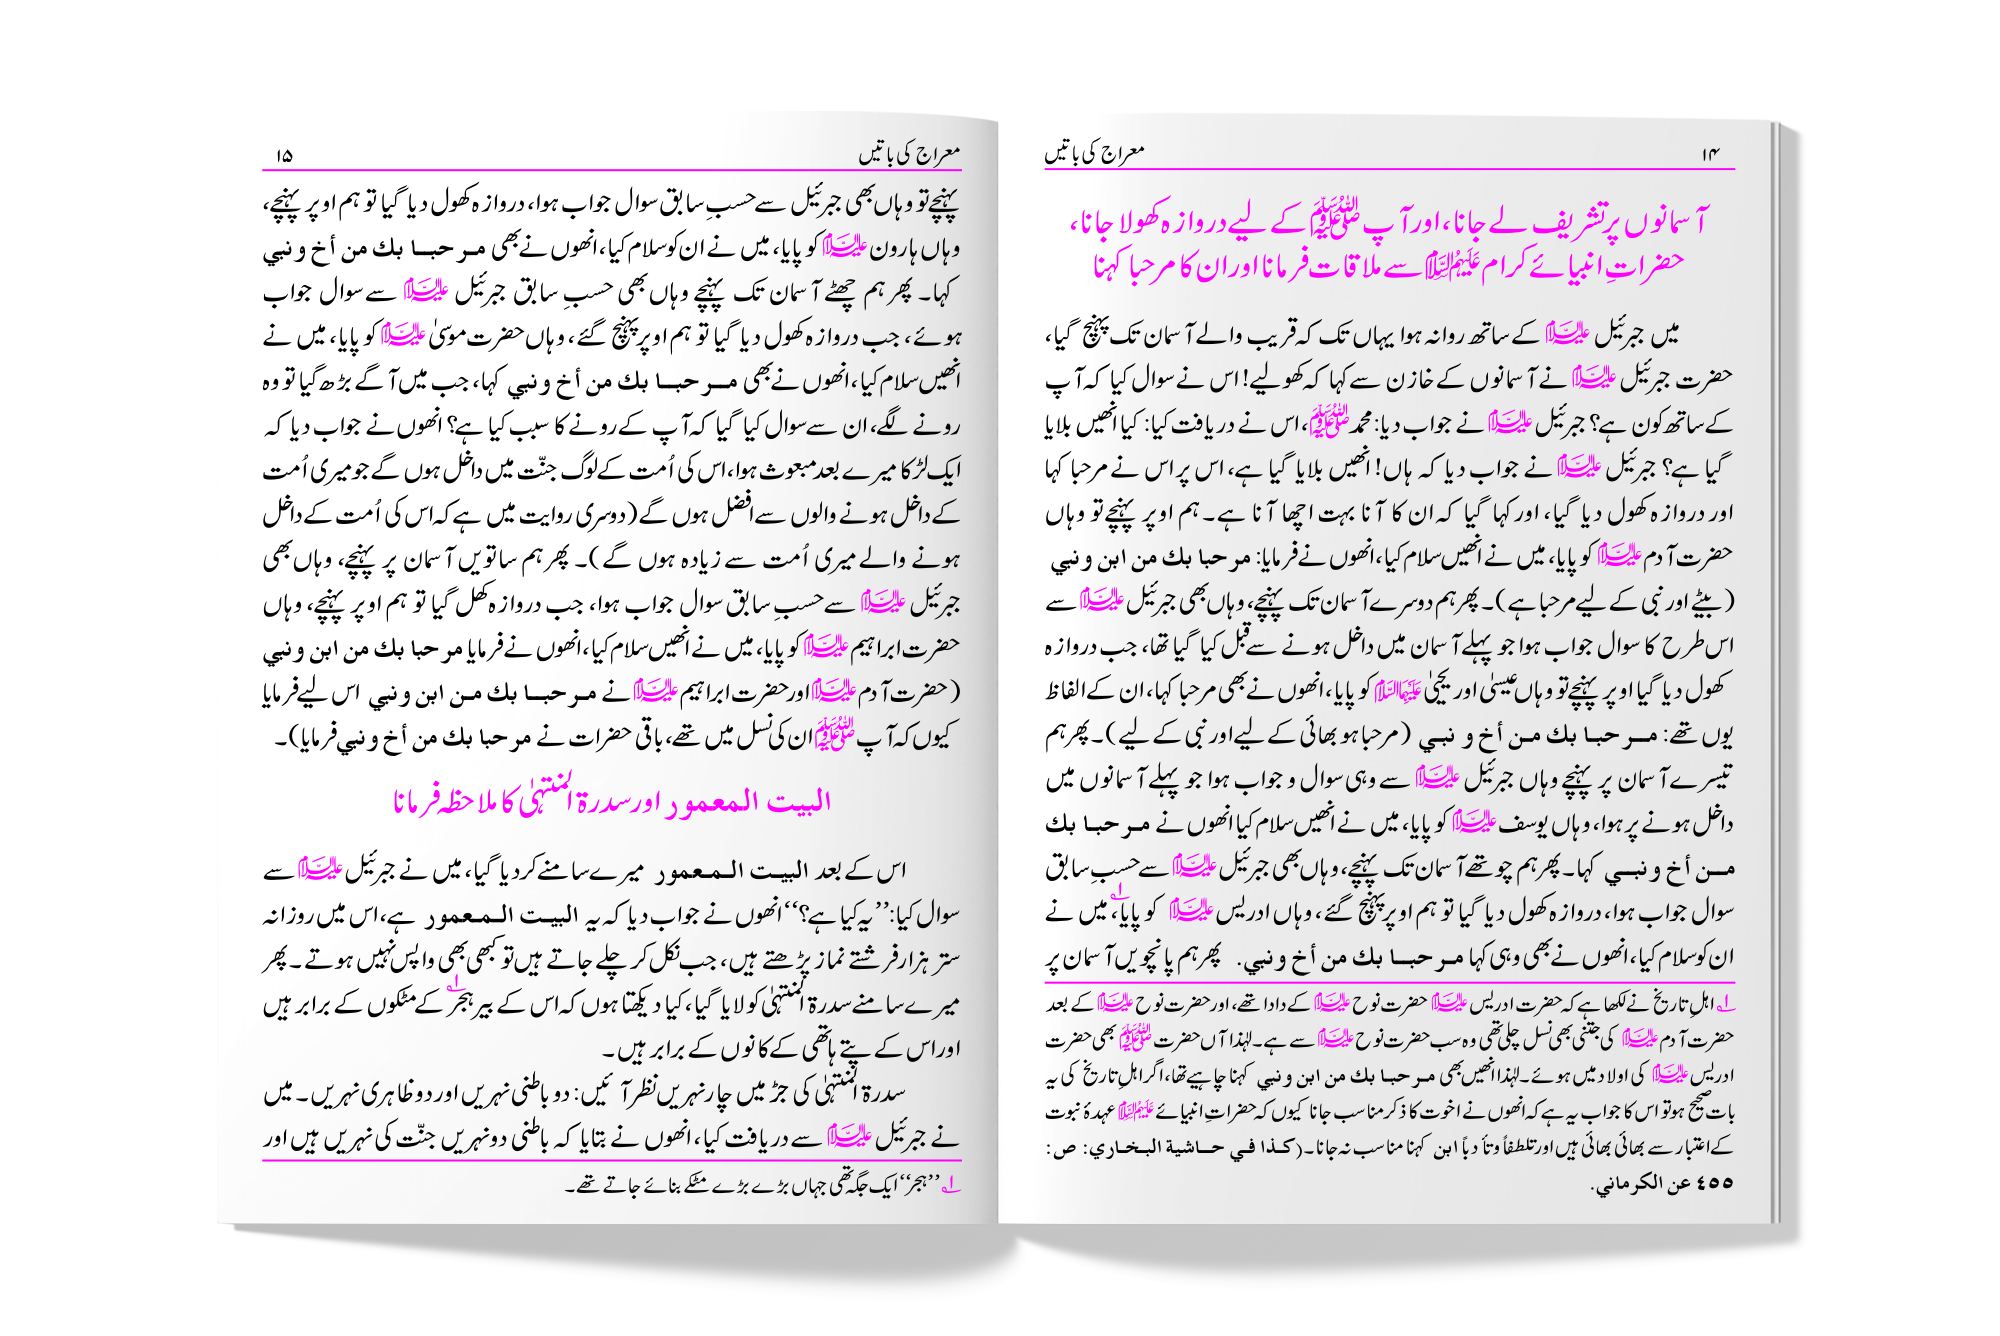 ۱۴ معراج کی باتیں
آسمانوں پر تشریف لے جانا، اور آپ ﷺ کے لیے دروازہ کھولا جانا،
حضراتِ انبیائے کرام علیہم السلام سے ملاقات فرمانا اور ان کا مرحبا کہنا
میں جبرئیل علیہ السلام کے ساتھ روانہ ہوا یہاں تک کہ قریب والے آسمان تک پہنچ گیا،
حضرت جبرئیل علیہ السلام نے آسمانوں کے خازن سے کہا کہ کھولیے! اس نے سوال کیا کہ آپ
کے ساتھ کون ہے؟ جبرئیل علیہ السلام نے جواب دیا: محمد ﷺ، اس نے دریافت کیا: کیا انھیں بلایا
گیا ہے؟ جبرئیل علیہ السلام نے جواب دیا کہ ہاں! انھیں بلایا گیا ہے، اس پر اس نے مرحبا کہا
اور دروازہ کھول دیا گیا، اور کہا گیا کہ ان کا آنا بہت اچھا آنا ہے۔ ہم اوپر پہنچے تو وہاں
حضرت آدم علیہ السلام کو پایا، میں نے انھیں سلام کیا، انھوں نے فرمایا: مرحبا بك من ابن ونبي
(بیٹے اور نبی کے لیے مرحبا ہے)۔ پھر ہم دوسرے آسمان تک پہنچے، وہاں بھی جبرئیل علیہ السلام سے
اس طرح کا سوال جواب ہوا جو پہلے آسمان میں داخل ہونے سے قبل کیا گیا تھا، جب دروازہ
کھول دیا گیا اوپر پہنچے تو وہاں عیسیٰ اور یحییٰ علیہما السلام کو پایا، انھوں نے بھی مرحبا کہا، ان کے الفاظ
یوں تھے: مرحبا بك من أخ و نبي (مرحبا ہو بھائی کے لیے اور نبی کے لیے)۔ پھر ہم
تیسرے آسمان پر پہنچے وہاں جبرئیل علیہ السلام سے وہی سوال و جواب ہوا جو پہلے آسمانوں میں
داخل ہونے پر ہوا، وہاں یوسف علیہ السلام کو پایا، میں نے انھیں سلام کیا انھوں نے مرحبا بك
من أخ ونبي کہا۔ پھر ہم چوتھے آسمان تک پہنچے، وہاں بھی جبرئیل علیہ السلام سے حسبِ سابق
سوال جواب ہوا، دروازہ کھول دیا گیا تو ہم اوپر پہنچ گئے، وہاں ادریس علیہ السلام کو پایا،۱ میں نے
ان کو سلام کیا، انھوں نے بھی وہی کہا مرحبا بك من أخ ونبي. پھر ہم پانچویں آسمان پر
۱ اہلِ تاریخ نے لکھا ہے کہ حضرت ادریس علیہ السلام حضرت نوح علیہ السلام کے دادا تھے، اور حضرت نوح علیہ السلام کے بعد
حضرت آدم علیہ السلام کی جتنی بھی نسل چلی تھی وہ سب حضرت نوح علیہ السلام سے ہے۔ لہٰذا آں حضرت ﷺ بھی حضرت
ادریس علیہ السلام کی اولاد میں ہوئے۔ لہٰذا انھیں بھی مرحبا بك من ابن ونبي کہنا چاہیے تھا، اگر اہلِ تاریخ کی یہ
بات صحیح ہو تو اس کا جواب یہ ہے کہ انھوں نے اخوت کا ذکر مناسب جانا کیوں کہ حضراتِ انبیائے علیہم السلام عہدۂ نبوت
کے اعتبار سے بھائی بھائی ہیں اور تلطفاً وتأدباً ابن کہنا مناسب نہ جانا۔ (كذا في حاشية البخاري: ص:
٤٥٥ عن الكرماني.
معراج کی باتیں ۱۵
پہنچے تو وہاں بھی جبرئیل سے حسبِ سابق سوال جواب ہوا، دروازہ کھول دیا گیا تو ہم اوپر پہنچے،
وہاں ہارون علیہ السلام کو پایا، میں نے ان کو سلام کیا، انھوں نے بھی مرحبا بك من أخ ونبي
کہا۔ پھر ہم چھٹے آسمان تک پہنچے وہاں بھی حسبِ سابق جبرئیل علیہ السلام سے سوال جواب
ہوئے، جب دروازہ کھول دیا گیا تو ہم اوپر پہنچ گئے، وہاں حضرت موسیٰ علیہ السلام کو پایا، میں نے
انھیں سلام کیا، انھوں نے بھی مرحبا بك من أخ ونبي کہا، جب میں آگے بڑھ گیا تو وہ
رونے لگے، ان سے سوال کیا گیا کہ آپ کے رونے کا سبب کیا ہے؟ انھوں نے جواب دیا کہ
ایک لڑکا میرے بعد مبعوث ہوا، اس کی اُمت کے لوگ جنّت میں داخل ہوں گے جو میری اُمت
کے داخل ہونے والوں سے افضل ہوں گے (دوسری روایت میں ہے کہ اس کی اُمت کے داخل
ہونے والے میری اُمت سے زیادہ ہوں گے)۔ پھر ہم ساتویں آسمان پر پہنچے، وہاں بھی
جبرئیل علیہ السلام سے حسبِ سابق سوال جواب ہوا، جب دروازہ کھل گیا تو ہم اوپر پہنچے، وہاں
حضرت ابراہیم علیہ السلام کو پایا، میں نے انھیں سلام کیا، انھوں نے فرمایا مرحبا بك من ابن ونبي
(حضرت آدم علیہ السلام اور حضرت ابراہیم علیہ السلام نے مرحبا بك من ابن ونبي اس لیے فرمایا
کیوں کہ آپ ﷺ ان کی نسل میں تھے، باقی حضرات نے مرحبا بك من أخ ونبي فرمایا)۔
البيت المعمور اور سدرۃ المنتہیٰ کا ملاحظہ فرمانا
اس کے بعد البيت المعمور میرے سامنے کر دیا گیا، میں نے جبرئیل علیہ السلام سے
سوال کیا: ’’یہ کیا ہے؟‘‘ انھوں نے جواب دیا کہ یہ البيت المعمور ہے، اس میں روزانہ
ستر ہزار فرشتے نماز پڑھتے ہیں، جب نکل کر چلے جاتے ہیں تو کبھی بھی واپس نہیں ہوتے۔ پھر
میرے سامنے سدرۃ المنتہیٰ کو لایا گیا، کیا دیکھتا ہوں کہ اس کے بیر ہجر۱ کے مٹکوں کے برابر ہیں
اور اس کے پتے ہاتھی کے کانوں کے برابر ہیں۔
سدرۃ المنتہیٰ کی جڑ میں چار نہریں نظر آئیں: دو باطنی نہریں اور دو ظاہری نہریں۔ میں
نے جبرئیل علیہ السلام سے دریافت کیا، انھوں نے بتایا کہ باطنی دو نہریں جنّت کی نہریں ہیں اور
۱ ’’ہجر‘‘ ایک جگہ تھی جہاں بڑے بڑے مٹکے بنائے جاتے تھے۔